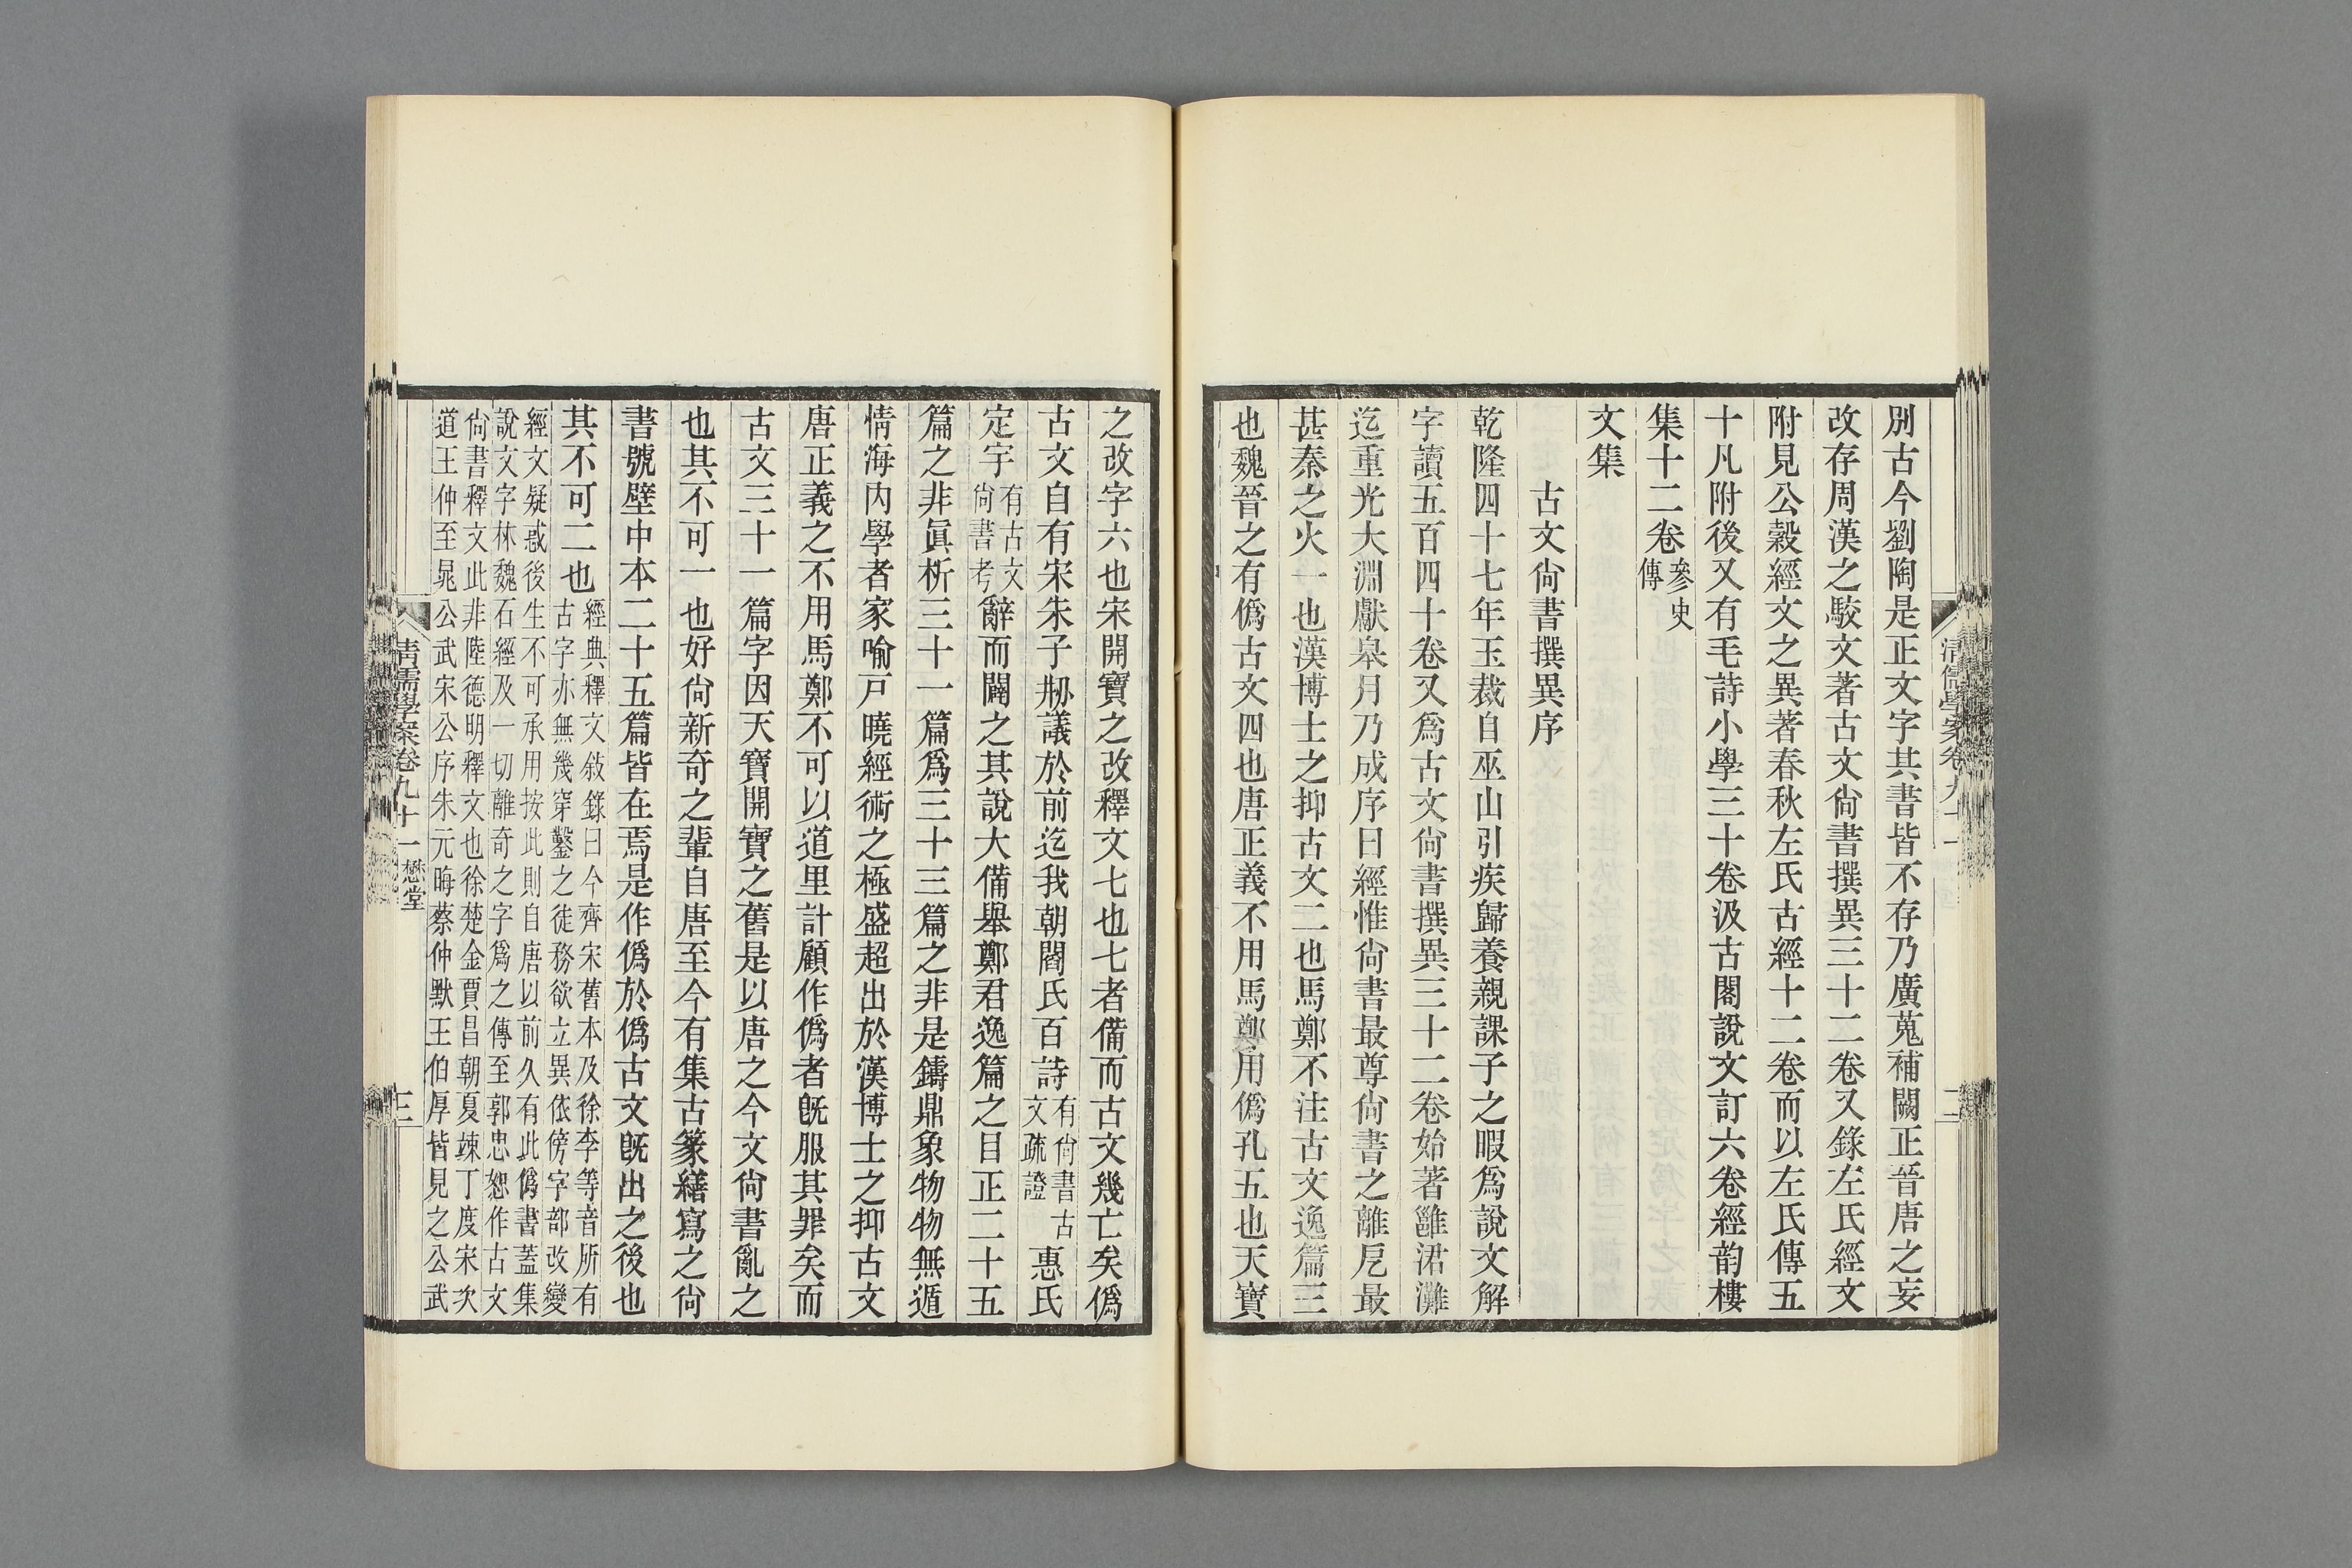 別古今劉陶是正文字其書皆不存乃廣蒐補闕正晉唐之妄
改存周漢之駮文著古文尙書撰異三十二卷又錄左氏經文
附見公穀經文之異著春秋左氏古經十二卷而以左氏傳五
十凡附後又有毛詩小學三十卷汲古閣說文訂六卷經韵樓
集十二卷
參史
傳
文集
古文尙書撰異序
乾隆四十七年玉裁自巫山引疾歸養親課子之暇爲說文解
字讀五百四十卷又爲古文尙書撰異三十二卷始著雝涒灘
迄重光大淵獻皋月乃成序曰經惟尙書最尊尙書之離戹最
甚秦之火一也漢博士之抑古文二也馬鄭不注古文逸篇三
也魏晉之有僞古文四也唐正義不用馬鄭用僞孔五也天寶
之改字六也宋開寶之改釋文七也七者備而古文幾亡矣僞
古文自有宋朱子刱議於前迄我朝閻氏百詩
有尙書古
文疏證
惠氏
定宇
有古文
尙書考
辭而闢之其說大備舉鄭君逸篇之目正二十五
篇之非眞析三十一篇爲三十三篇之非是鑄鼎象物物無遁
情海內學者家喻戸曉經術之極盛超出於漢博士之抑古文
唐正義之不用馬鄭不可以道里計顧作僞者旣服其罪矣而
古文三十一篇字因天寶開寶之舊是以唐之今文尙書亂之
也其不可一也好尙新奇之輩自唐至今有集古篆繕寫之尙
書號壁中本二十五篇皆在焉是作僞於僞古文旣出之後也
其不可二也
經典釋文敍錄曰今齊宋舊本及徐李等音所有
古字亦無幾穿鑿之徒務欲立異依傍字部改變
經文疑惑後生不可承用按此則自唐以前久有此僞書蓋集
說文字林魏石經及一切離奇之字爲之傳至郭忠恕作古文
尙書釋文此非陸德明釋文也徐楚金賈昌朝夏竦丁度宋次
道王仲至晁公武宋公序朱元晦蔡仲默王伯厚皆見之公武
清儒學案卷九十一 懋堂
三